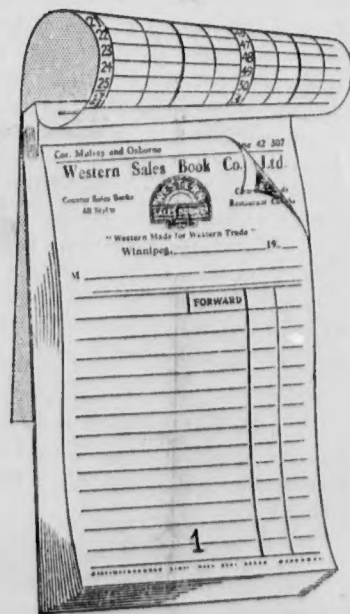 22
23
24
25
47
48
49
50
Cor. Mulvey and Osborne
42 307
Western Sales Book Co. Ltd.
Counter Sales Books
All Styles
Restaurant
"Western Made for Western Trade"
Winnipeg, 19
M
FORWARD
1